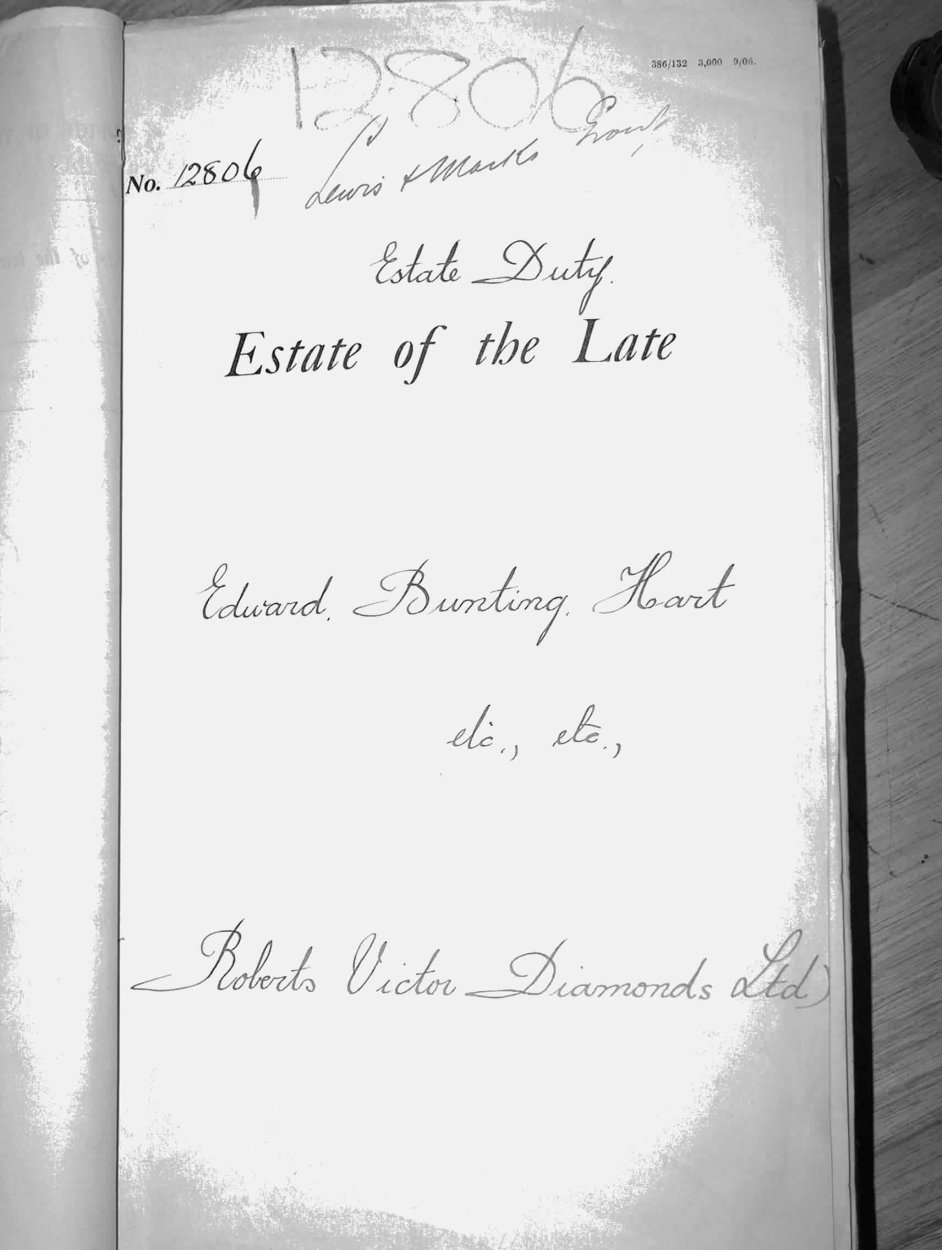 12806
386/132 3,000 9/06.
No. 12806
Lewis & Marks Group
Estate Duty.
Estate of the Late
Edward. Bunting. Hart
etc., etc.,
Roberts Victor Diamonds Ltd)